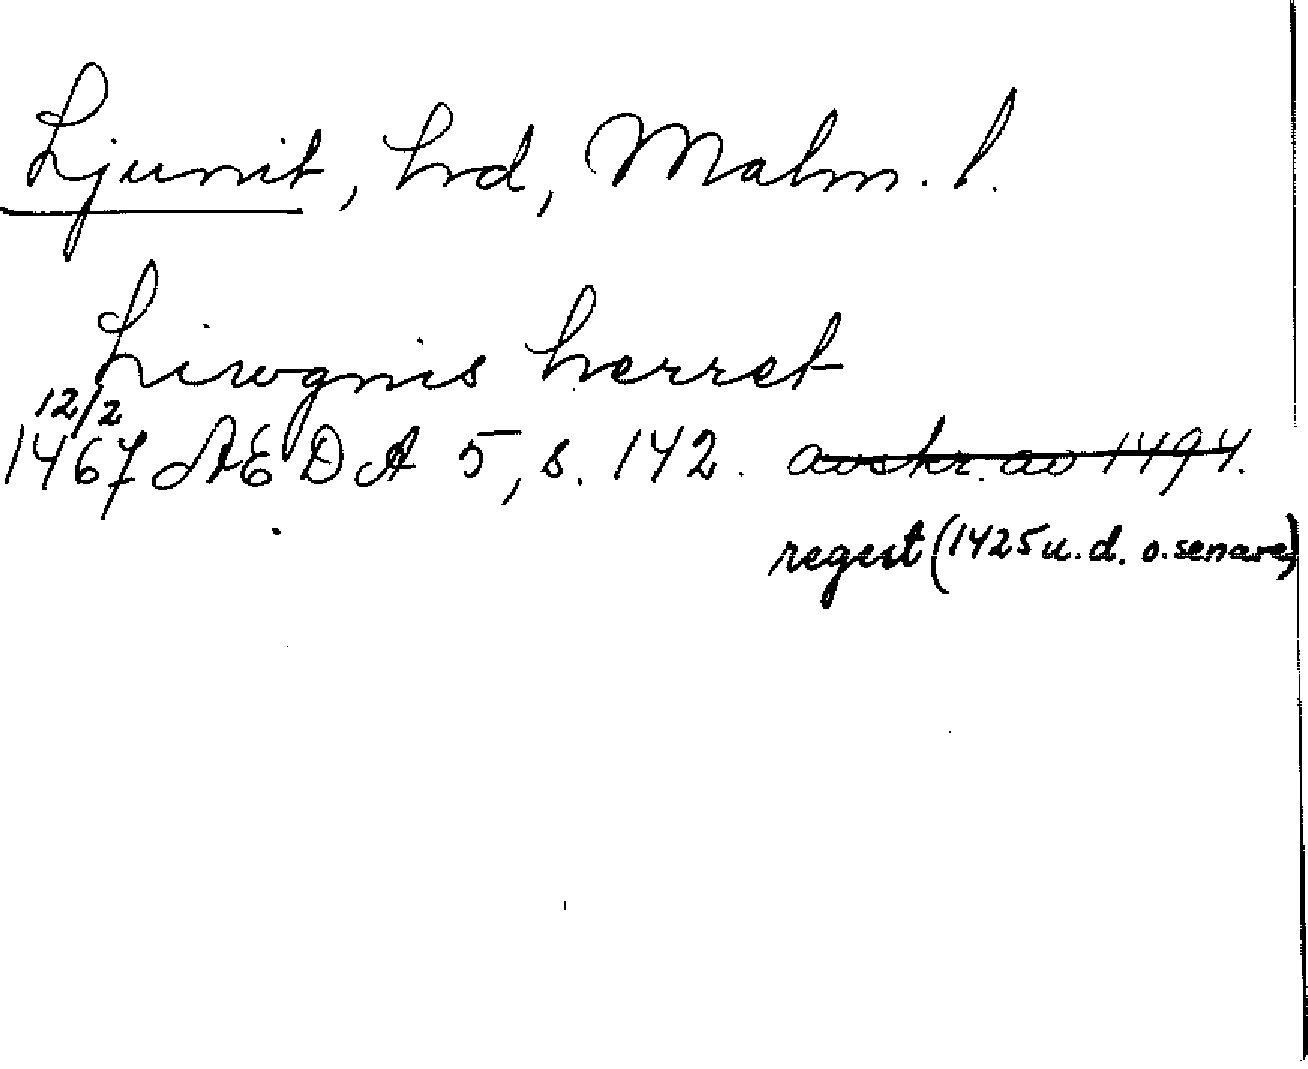 Ljunit, hd, Malm. l.
Liwgnis herret
12/2
1467 ÆDA 5, s. 142. avskr. av 1494.
regest (1425 u. d. o. senare)